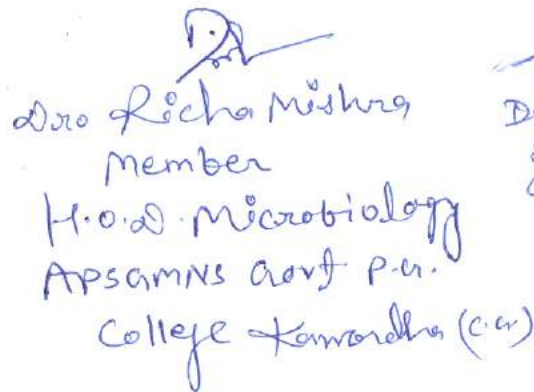 Dr. Richa Mishra
Member
H.O.D. Microbiology
APSGMNS Govt P.G.
College Kawardha (C.G.)